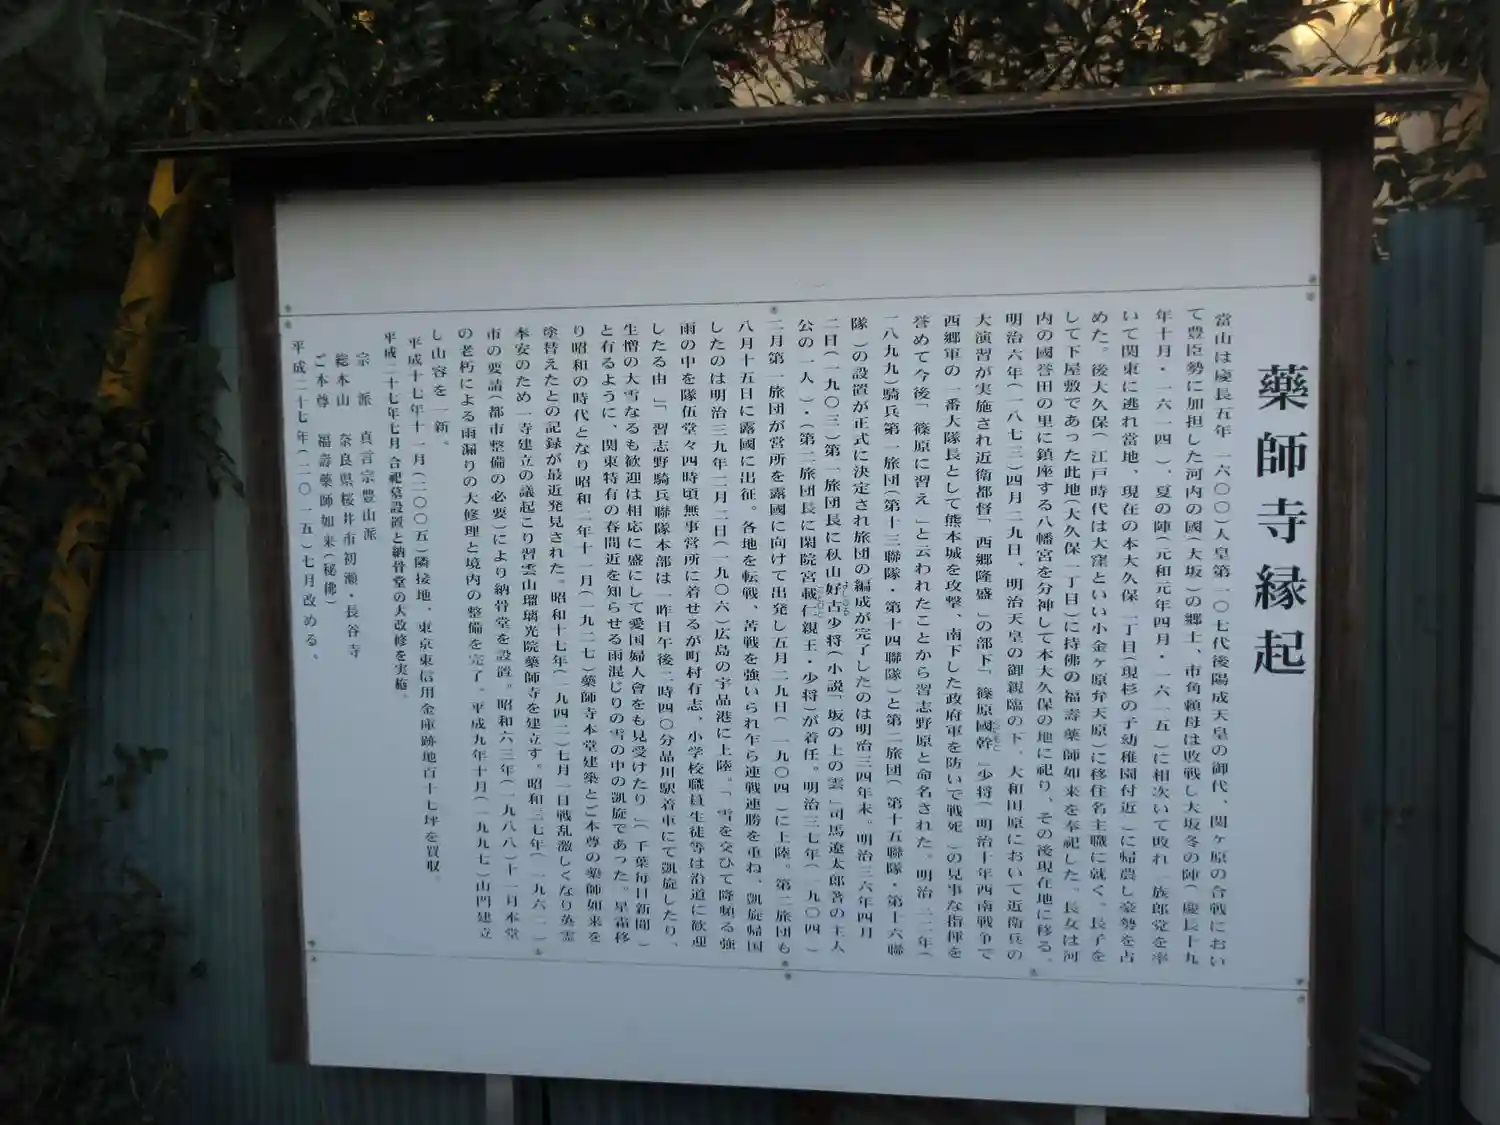 藥師寺縁起
當山は慶長五年（一六〇〇）人皇第一〇七代後陽成天皇の御代、関ヶ原の合戦におい
て豊臣勢に加担した河内の國（大坂）の郷士、市角頼母は敗戦し大坂冬の陣（慶長十九
年十月・一六一四）、夏の陣（元和元年四月・一六一五）に相次いで敗れ一族郎党を率
いて関東に逃れ當地、現在の本大久保一丁目（現杉の子幼稚園付近）に帰農し豪勢を占
めた。後大久保（江戸時代は大窪といい小金ヶ原弁天原）に移住名主職に就く。長子を
して下屋敷であった此地（大久保一丁目）に持佛の福壽藥師如来を奉祀した。長女は河
内の國誉田の里に鎮座する八幡宮を分神して本大久保の地に祀り、その後現在地に移る。
明治六年（一八七三）四月二九日、明治天皇の御親臨の下、大和田原において近衛兵の
大演習が実施され近衛都督「西郷隆盛」の部下「篠原國幹」少将（明治十年西南戦争で
西郷軍の一番大隊長として熊本城を攻撃、南下した政府軍を防いで戦死）の見事な指揮を
誉めて今後「篠原に習え」と云われたことから習志野原と命名された。明治三二年（
一八九九）騎兵第一旅団（第十三聯隊・第十四聯隊）と第二旅団（第十五聯隊・第十六聯
隊）の設置が正式に決定され旅団の編成が完了したのは明治三四年末。明治三六年四月
二日（一九〇三）第一旅団長に秋山好古少将（小説「坂の上の雲」司馬遼太郎著の主人
公の一人）・（第二旅団長に閑院宮載仁親王・少将）が着任。明治三七年（一九〇四）
二月第一旅団が営所を露國に向けて出発し五月二九日（一九〇四）に上陸。第二旅団も
八月十五日に露國に出征。各地を転戦、苦戦を強いられ乍ら連戦連勝を重ね、凱旋帰国
したのは明治三九年二月二日（一九〇六）広島の宇品港に上陸。「雪を交ひて降頻る強
雨の中を隊伍堂々四時頃無事営所に着せるが町村有志、小学校職員生徒等は沿道に歓迎
したる由」「習志野騎兵聯隊本部は一昨日午後二時四〇分品川駅着車にて凱旋したり、
生憎の大雪なるも歓迎は相応に盛にして愛国婦人會をも見受けたり」（千葉毎日新聞）
と有るように、関東特有の春間近を知らせる雨混じりの雪の中の凱旋であった。星霜移
り昭和の時代となり昭和二年十一月（一九二七）藥師寺本堂建築とご本尊の藥師如来を
塗替えたとの記録が最近発見された。昭和十七年（一九四二）七月一日戦乱激しくなり英霊
奉安のため一寺建立の議起こり習雲山瑠璃光院藥師寺を建立す。昭和三七年（一九六二）
市の要請（都市整備の必要）により納骨堂を設置。昭和六三年（一九八八）十一月本堂
の老朽による雨漏りの大修理と境内の整備を完了。平成九年十月（一九九七）山門建立
し山容を一新。
平成十七年十一月（二〇〇五）隣接地、東京東信用金庫跡地百十七坪を買収。
平成二十七年七月合祀墓設置と納骨堂の大改修を実施。
宗　派　真言宗豊山派
総本山　奈良県桜井市初瀬・長谷寺
ご本尊　福壽藥師如来（秘佛）
平成二十七年（二〇一五）七月改める。